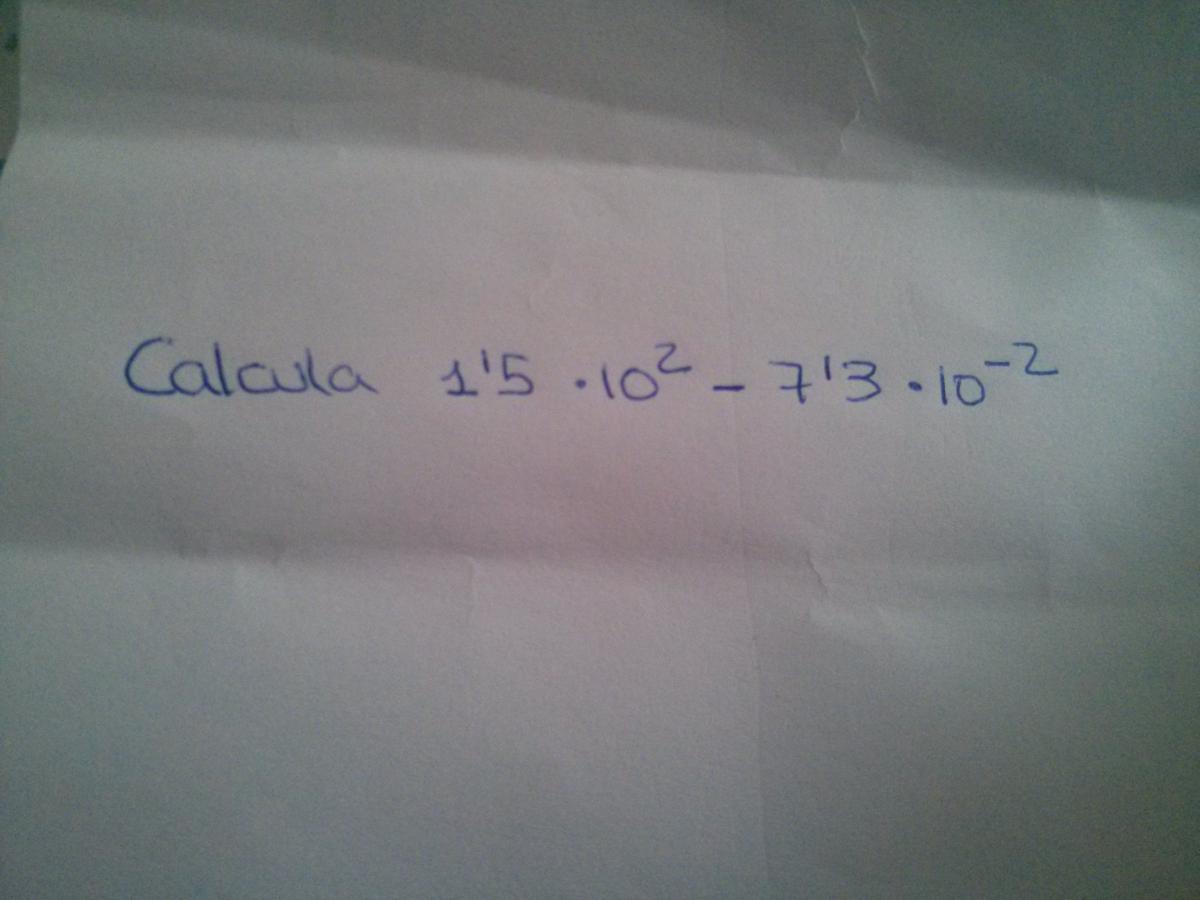 Calcula 1'5 · 10² - 7'3 · 10⁻²